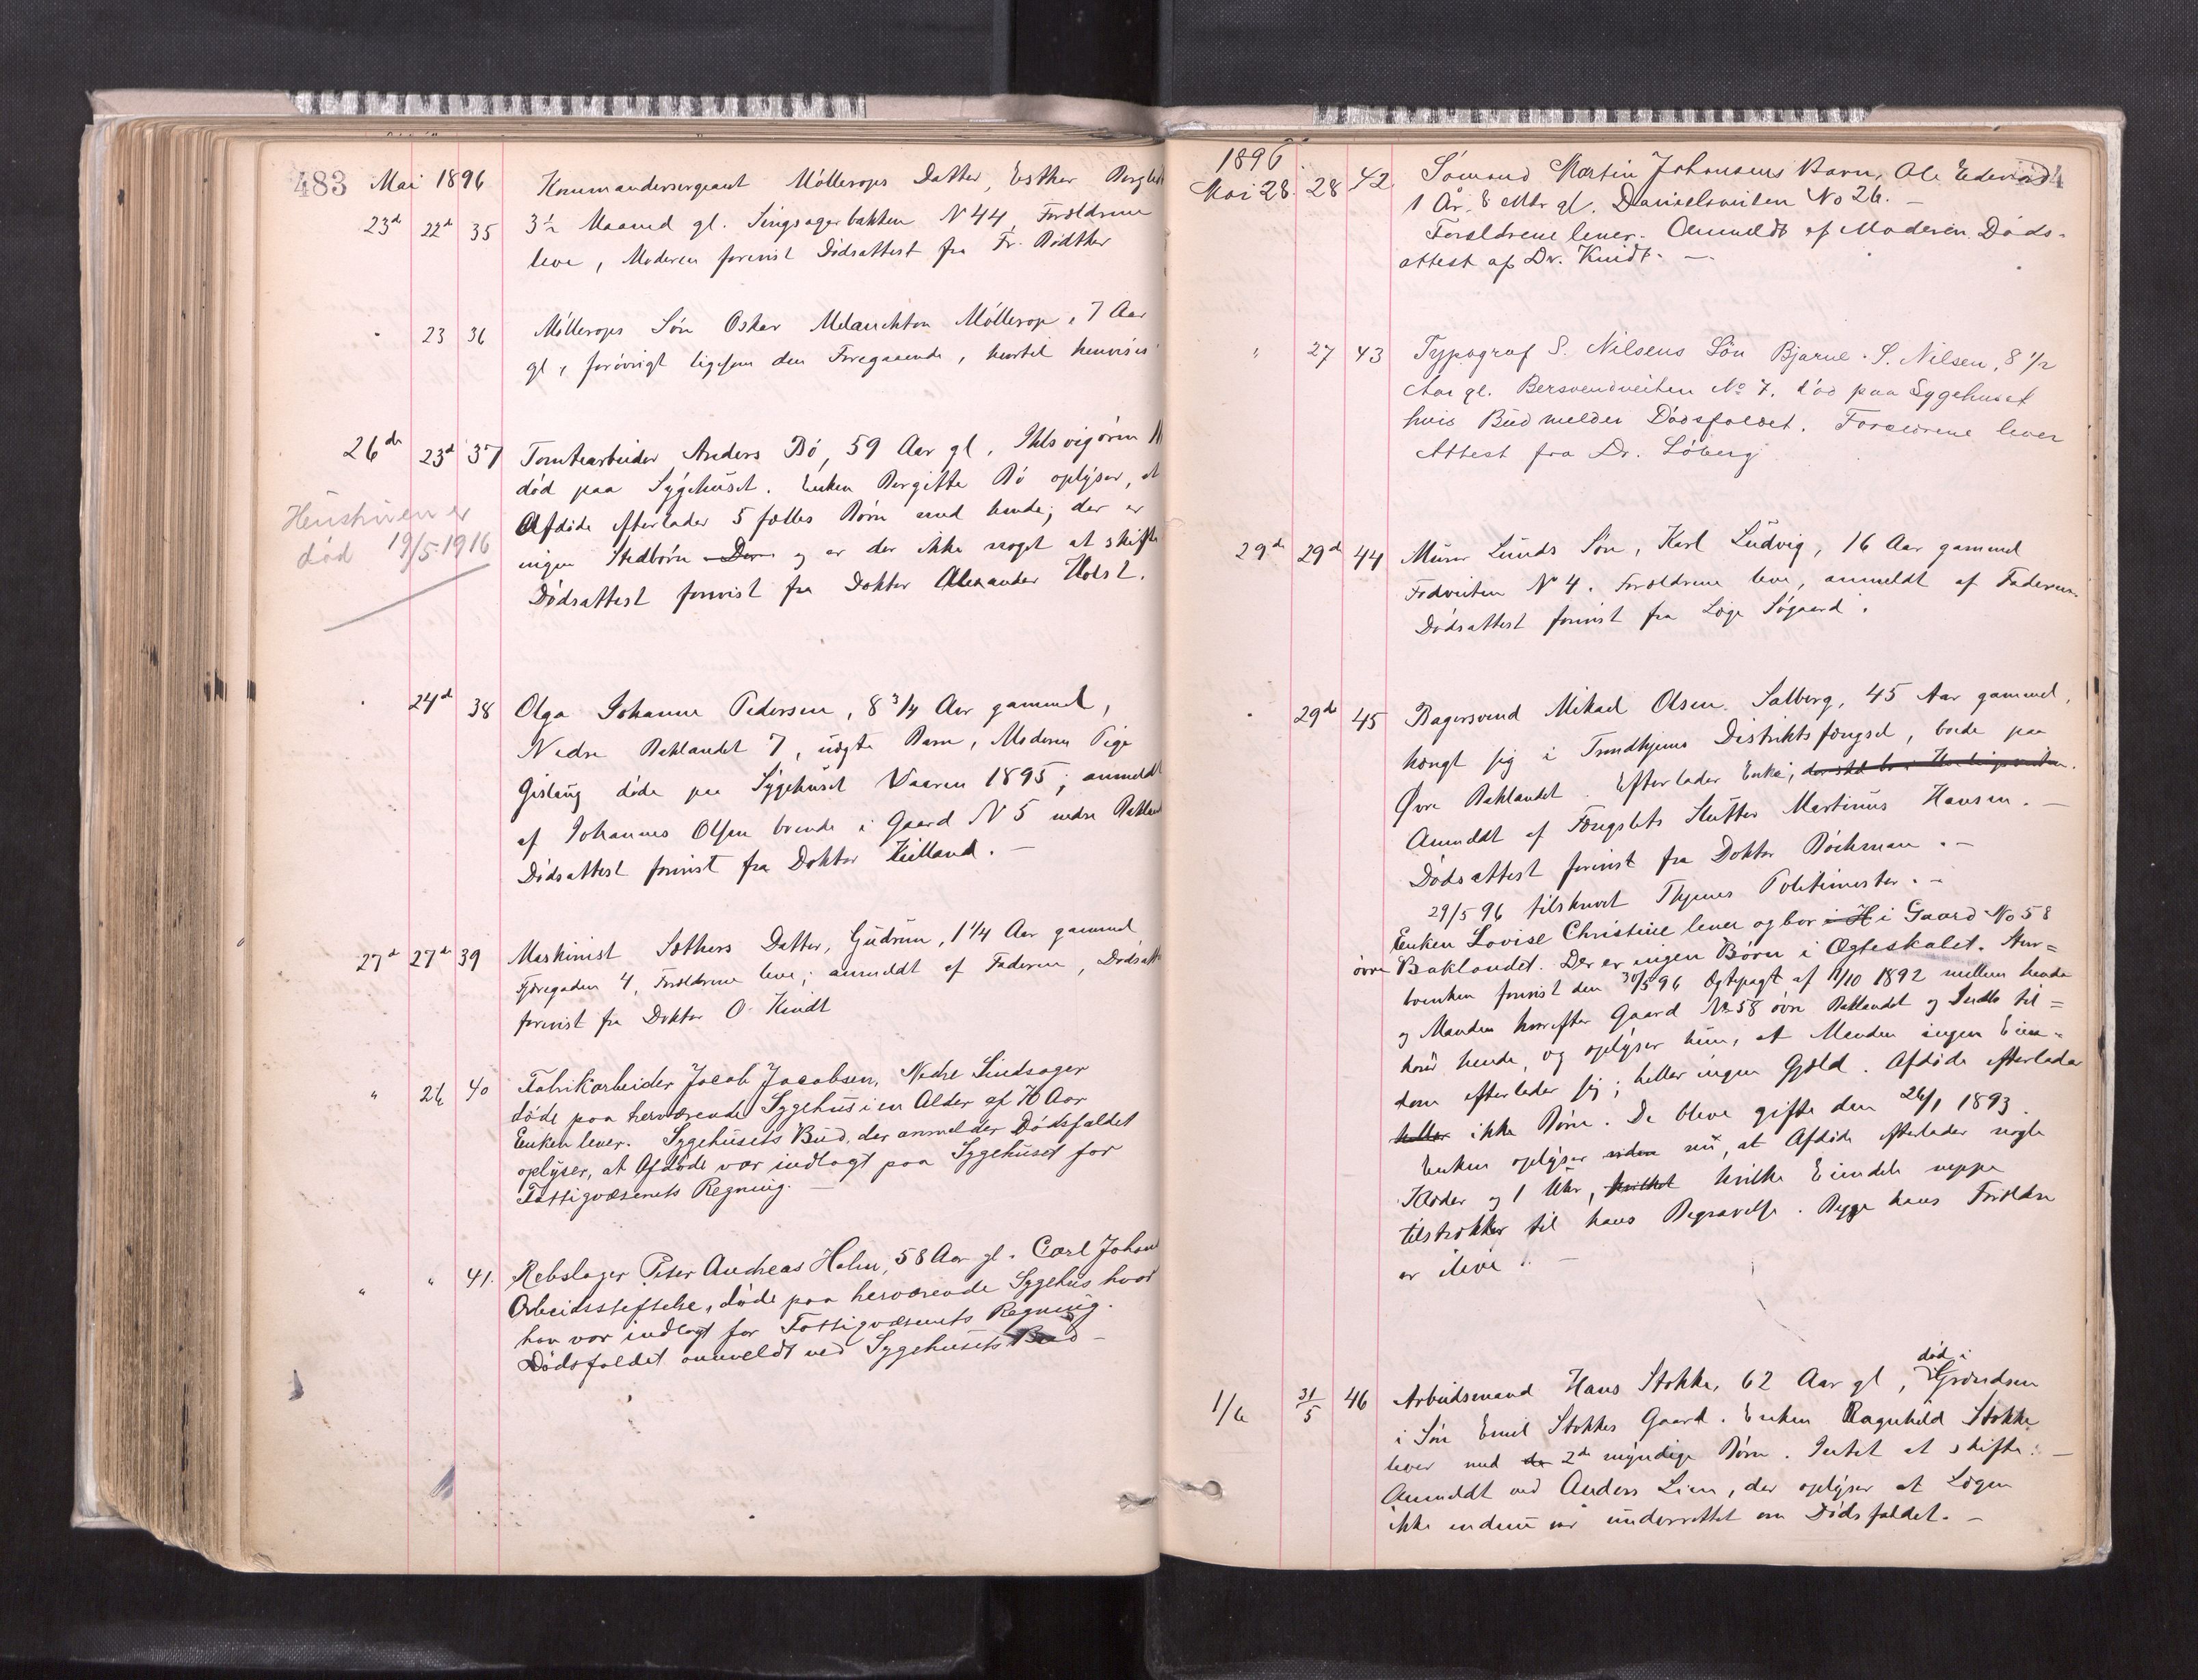 483 Mai 1896 Kommandersergeant Möllerops Datter, Esther
23d 22d 35 3½ Maaned gl. Singsagerbakken N 44, Forældrene
leve, Moderen forevist Dödsattest fra Fr. Bödtker
" 23 36 Möllerops Sön Oskar Melanchton Möllerop, 7 Aar
gl, forövrigt ligesom den Foregaaende, hvortil henvises
26de 23d 37 Tomtearbeider Anders Bö, 59 Aar gl, Ihlsvigören
död paa Sygehuset. Enken Bergitte Bö oplyser, at
Afdöde efterlader 5 fælles Börn med hende; der er
ingen Stedbörn Der og er der ikke noget at skifte
Dödsattest forevist fra Doktor Alexander Holst.
Hustruen er
död 19/5 1916
" 24d 38 Olga Johanne Pedersen, 8 3/4 Aar gammel,
Nedre Baklandet 7, uægte Barn, Moderen Pige
Gislaug döde paa Sygehuset Vaaren 1895; anmeldt
af Johannes Olsen boende i Gaard N 5 nedre Bakland
Dödsattest forevist fra Doktor Kielland. –
27de 27de 39 Maskinist Sæthers Datter, Gudrun, 1 1/4 Aar gammel
Fjæregaden 4, Forældrene leve; anmeldt af Faderen, Dödsatt
forevist fra Doktor O. Kindt
" 26 40 Fabrikarbeider Jacob Jacobsen, Nedre Sindsager
döde paa herværende Sygehus i en Alder af 70 Aar
Enken lever. Sygehusets Bud, der anmelder Dödsfaldet
oplyser, at Afdöde var indlagt paa Sygehuset for
Fattigvæsenets Regning. –
" " 41. Rebslager Peter Andreas Holm, 58 Aar gl. Carl Johans
Arbeidsstiftelse, döde paa herværende Sygehus hvor
han var indlagt for Fattigvæsenets Regning.
Dödsfaldet anmeldt ved Sygehusets Bud –
1896
Mai 28. 28 42 Sömand Martin Johansens Barn, Ole Edevard
1 År. 8 Mdr gl. Danielsveiten No 26. –
Forældrene lever. Anmeldt af Moderen. Döds-
attest af Dr. Kindt. –
" 27 43 Typograf S. Nilsens Sön Bjarne S. Nilsen, 8 1/2
Aar gl. Bersvendveiten No 7. död paa Sygehuset
hvis Bud melder Dödsfaldet. Forældrene lever
Attest fra Dr. Löberg
29de 29d 44 Murer Lunds Sön, Karl Ludvig, 16 Aar gammel
Fodveiten N 4. Forældrene leve, anmeldt af Faderen.
Dödsattest forevist fra Læge Sögaard.
" 29de 45 Bagersvend Mikael Olsen Salberg, 45 Aar gammel,
hængt sig i Trondhjems Distriktsfængsel, boede paa
Øvre Baklandet. Efterlader Enke,
Anmeldt af Fængslets Slutter Martinus Hansen. –
Dödsattest forevist fra Doktor Böckman. –
29/5 96 tilskrevet Thjems Politimester. –
Enken Lovise Christine lever og bor i H i Gaard No 58
övre Baklandet. Der er ingen Börn i Ægteskabet.
forevist den 30/5 96 Ægtepagt af 11/10 1892 mellem hende
og Manden hvorefter Gaard No 58 övre Baklandet og Indbo til=
hörer hende, og oplyser hun, at Manden ingen Eien=
dom efterlader sig; heller ingen Gjæld. Afdöde efterlader
heller ikke Börn. De bleve gifte den 26/1 1893.
Enken oplyser videre nu, at Afdöde efterlader nogle
Klæder og 1 Uhr, hvilket hvilke Eiendele neppe
tilstrækker til hans Begravelse. Begge hans Forældre
er ilive. –
1/6 31/5 46 Arbeidsmand Hans Stokke, 62 Aar gl, död i Grændsen
i Sön Emil Stokkes Gaard. Enken Ragnhild Stokke
lever med de 2de myndige Börn. Intet at skifte. –
Anmeldt ved Anders Lien, der oplyser at Lægen
ikke endnu var underrettet om Dödsfaldet. –